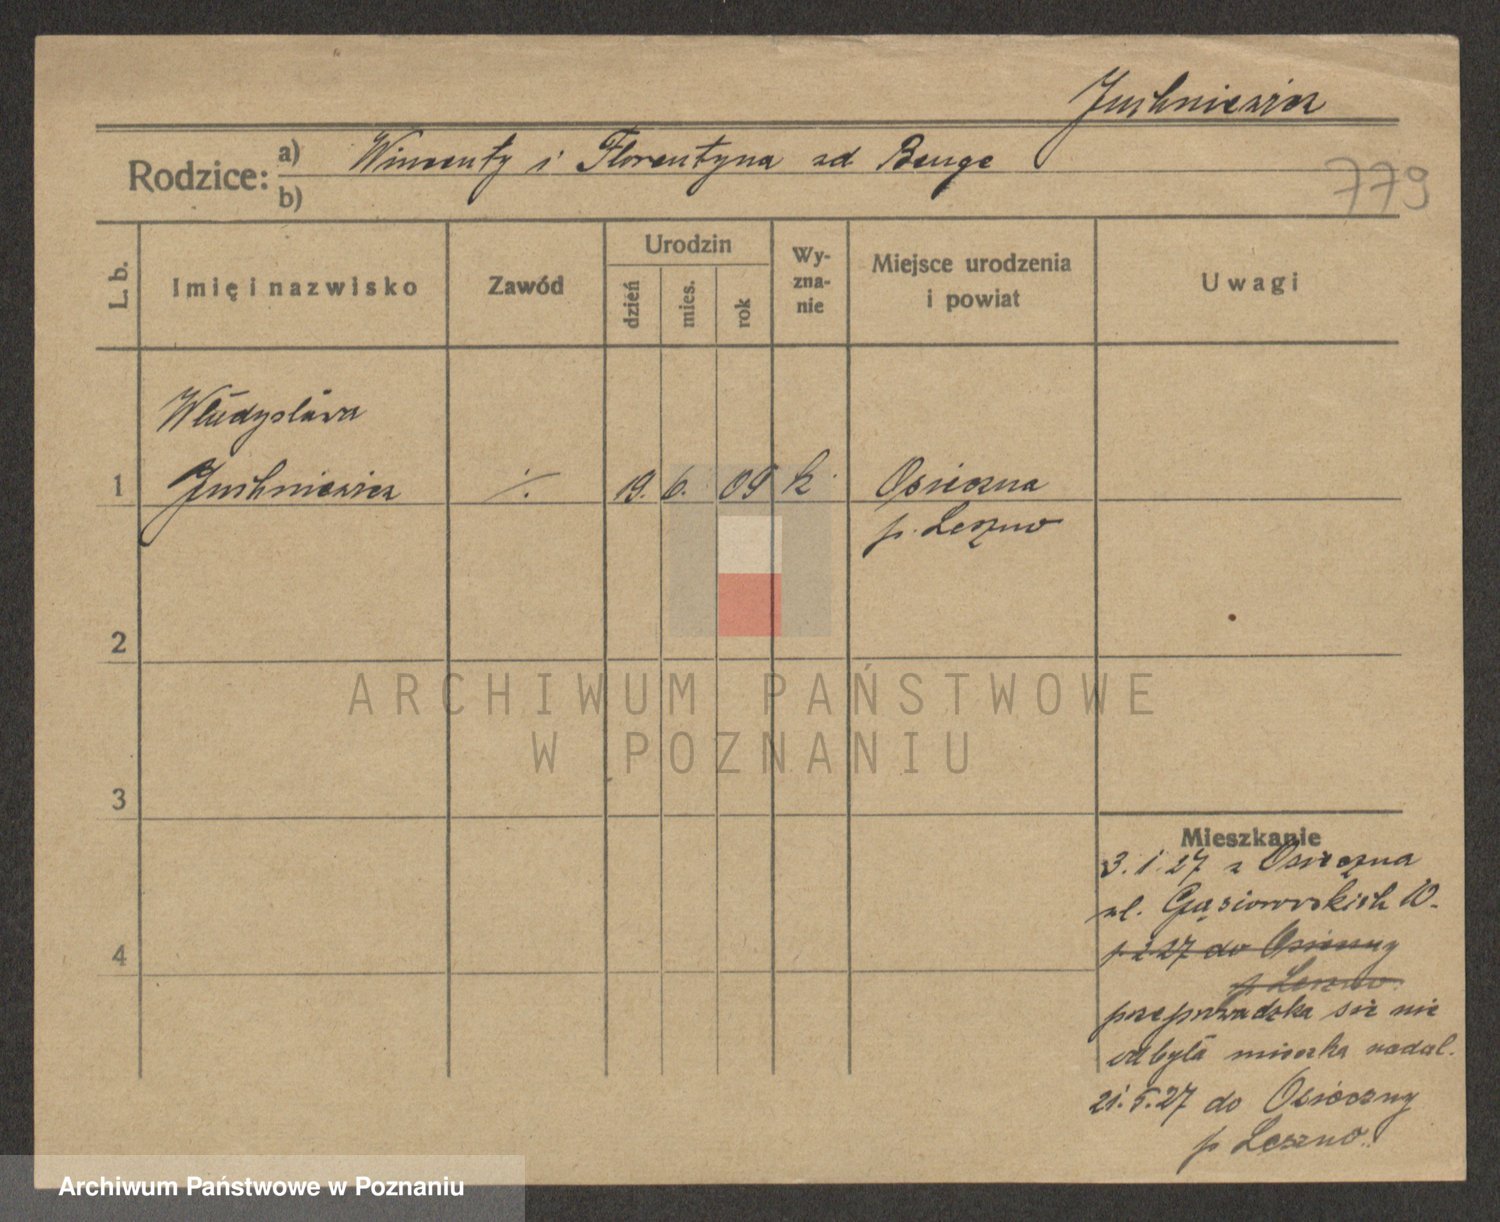 Juchniewicz
Rodzice: a) Wincenty i Florentyna zd Benge
b)
779
L. b.
Imię i nazwisko
Zawód
Urodzin
dzień
mies.
rok
Wy-
zna-
nie
Miejsce urodzenia
i powiat
Uwagi
Władysława
1 Juchniewicz ./. 19. 6. 09 k. Osieczna
p. Leszno
2
3
4
ARCHIWUM PAŃSTWOWE
W POZNANIU
Mieszkanie
3.1.27 z Osieczna
ul. Gąsiorowskich 10.
p 2.27 do Osieczny
p Leszno
przeprowadzka się nie
odbyła mieszka nadal.
21.5.27 do Osieczny
p Leszno.
Archiwum Państwowe w Poznaniu